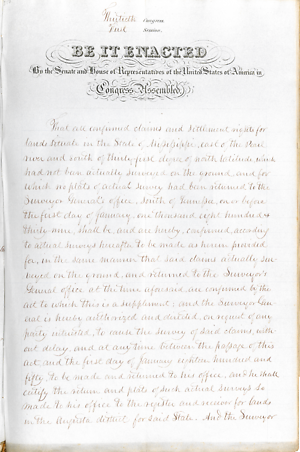 Thirtieth Congress
First Session
BE IT ENACTED
By the Senate and House of Representatives of the United States of America in
Congress Assembled
That all confirmed claims and settlement rights for
lands situate in the State of Mississippi, east of the Pearl
river and south of thirty-first degree of north latitude, which
had not been actually surveyed on the ground, and for
which no plats of actual survey had been returned to the
Surveyor General's office, South of Tennessee, on or before
the first day of January, one thousand eight hundred &
thirty-nine, shall be, and are hereby, confirmed, according
to actual surveys hereafter to be made as herein provided
for, in the same manner that said claims actually sur-
veyed on the ground, and returned to the Surveyor
General office at the time aforesaid are confirmed by the
act to which this is a supplement; and the Surveyor Gen-
eral is hereby authorized and directed, on request of any
party interested, to cause the survey of said claims, with-
out delay, and at any time between the passage of this
act and the first day of January eighteen hundred and
fifty, to be made and returned to his office, and he shall
certify the return and plats of such actual surveys so
made to his office to the register and receiver for lands
in the Augusta district for said State. And the Surveyor